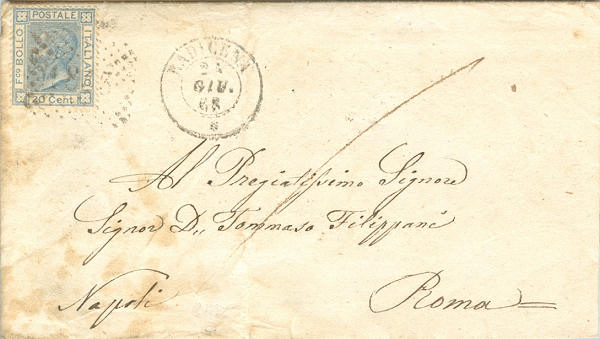 POSTALE
Fco BOLLO
ITALIANO
20 Cent
RADICENA
24
GIU.
68
Al Pregiatissimo Signore
Signor D,, Tommaso Filippani
Napoli Roma